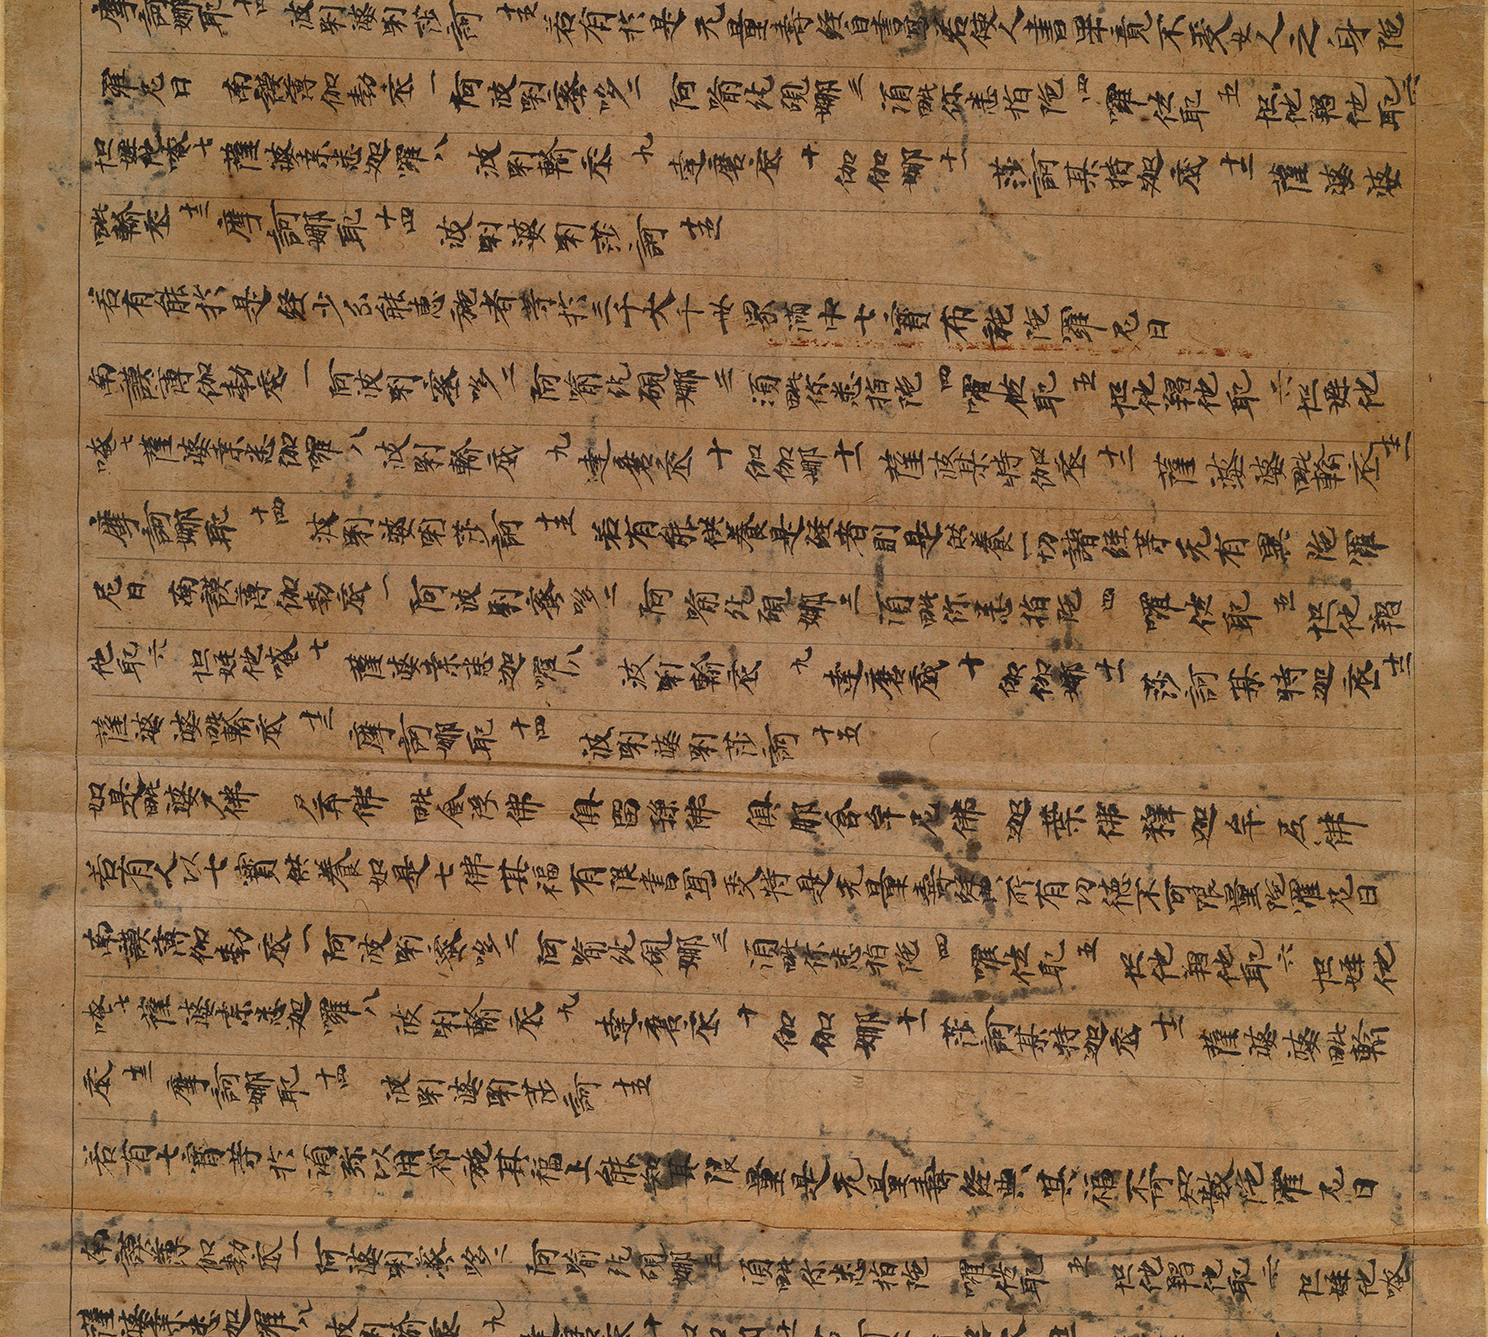 摩訶娜耶 十四 波唎婆唎莎訶 十五 若有於是无量壽經自書寫若使人書畢竟不受女人之身陀
羅尼曰 南謨薄伽勃底 一 阿波唎蜜哆 二 阿喻紇硯娜 三 須毗你悉指陀 四 囉佐耶 五 怛他羯他耶 六
怛姪他唵 七 薩婆桒悉迦囉 八 波唎輸底 九 達磨底 十 伽伽娜 十一 莎訶某特迦底 十二 薩婆婆
毗輸底 十三 摩訶娜耶 十四 波唎婆唎莎訶 十五
若有能於是經少分能惠施者等於三千大千世界滿中七寶布施陀羅尼曰
南謨薄伽勃底 一 阿波唎蜜哆 二 阿喻紇硯娜 三 須毗你悉指陀 四 囉佐耶 五 怛他羯他耶 六 怛姪他
唵 七 薩婆桒悉伽囉 八 波唎輸底 九 達磨底 十 伽伽娜 十一 薩婆某特伽底 十二 薩婆婆毗輸底 十三
摩訶娜耶 十四 波唎婆唎莎訶 十五 若有能供養是經者則是供養一切諸經等无有異陀羅
尼曰 南謨薄伽勃底 一 阿波唎蜜哆 二 阿喻紇硯娜 三 須毗你悉指陀 四 囉佐耶 五 怛他羯
他耶 六 怛姪他唵 七 薩婆桒悉迦囉 八 波唎輸底 九 達磨底 十 伽伽娜 十一 莎訶某特迦底 十二
薩婆婆毗輸底 十三 摩訶娜耶 十四 波唎婆唎莎訶 十五
如是毗婆尸佛 尸棄佛 毗舍浮佛 俱留孫佛 俱那含牟尼佛 迦葉佛 釋迦牟尼佛
若有人以七寶供養如是七佛其福有限書寫受持是无量壽經典所有功德不可限量陀羅尼曰
南謨薄伽勃底 一 阿波唎蜜哆 二 阿喻紇硯娜 三 須毗你悉指陀 四 囉佐耶 五 怛他羯他耶 六 怛姪他
唵 七 薩婆桒悉迦囉 八 波唎輸底 九 達磨底 十 伽伽娜 十一 莎訶某特迦底 十二 薩婆婆毗輸
底 十三 摩訶娜耶 十四 波唎婆唎莎訶 十五
若有七寶等於須弥以用布施其福上能知其限量是无量壽經典其福不可知數陀羅尼曰
南謨薄伽勃底 一 阿婆唎蜜哆 二 阿喻紇硯娜 三 須毗你悉指陀 囉佐耶 五 怛他羯他耶 六 怛姪他唵
薩婆桒悉迦羅 八 波唎輸底 九